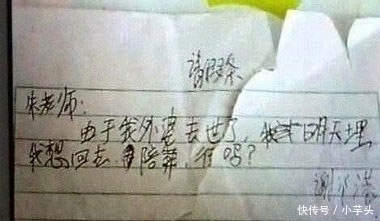 请假条
朱老师：
由于我外婆去世了，明天埋
我想回去陪葬，行吗？
谢
快传号 / 小芋头